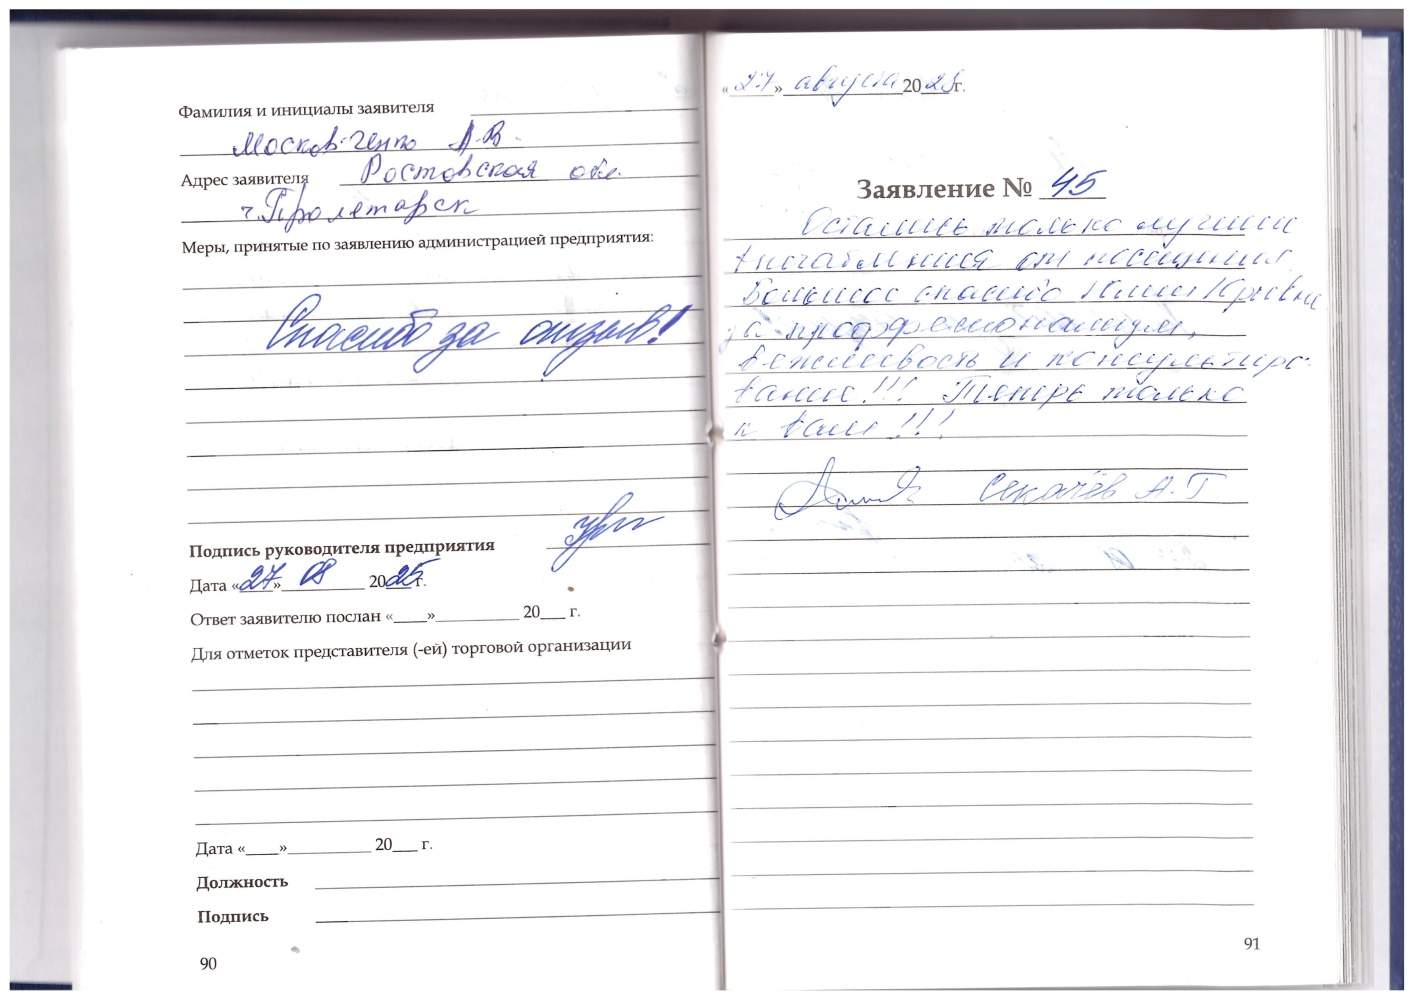 Фамилия и инициалы заявителя
Москов-ченко А.В.
Адрес заявителя Ростовская обл.
г.Пролетарск
Меры, принятые по заявлению администрацией предприятия:
Спасибо за отзыв!
Подпись руководителя предприятия
Дата «27» 08 2025 г.
Ответ заявителю послан «____»__________ 20___ г.
Для отметок представителя (-ей) торговой организации
Дата «____»__________ 20___ г.
Должность
Подпись
90
«27» августа 2025 г.
Заявление № 45
Остались только лучшии
впечатления от посещения
Большое спасибо Юлии Юрьевне
за профессионализм,
вежливость и консультиро-
вание!!! Теперь только
к вам!!!
Секачёв А.Г
91